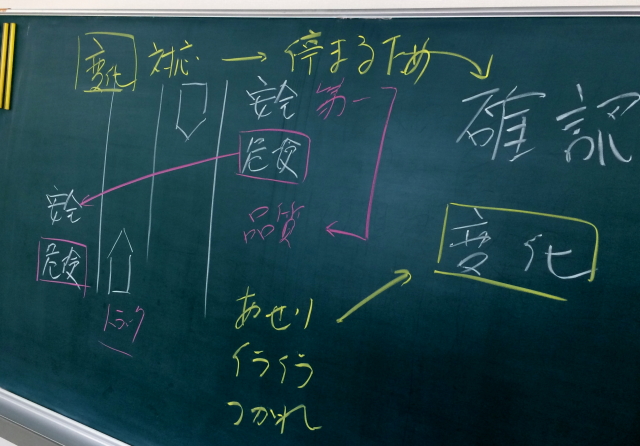 変化 対応 → 停まるため
確認
安全 第一
危険
品質
安全
危険
トラック
変化
あせり
イライラ
つかれ